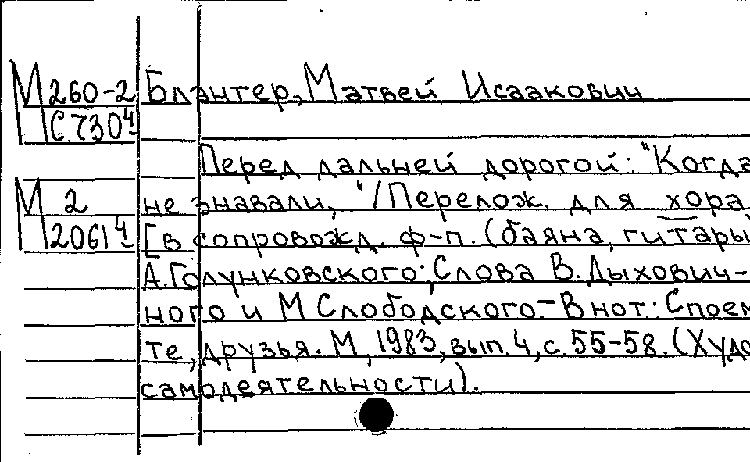 М 260-2 Блантер, Матвей Исаакович
С 730ч
Перед дальней дорогой: "Когда
М 2 не знавали, "/Перелож. для хора
2061ч [в сопровожд. ф-п. (баяна, гитары
А. Голунковского; Слова В. Дыхович-
ного и М Слободского.- В нот: Споем
те, друзья. М, 1983, вып. 4, с. 55-58. (Худо
самодеятельности).